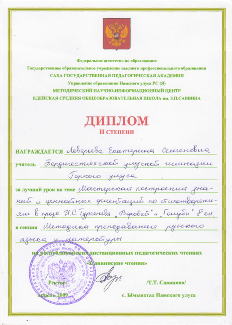 Федеральное агентство по образованию
Государственное образовательное учреждение высшего профессионального образования
САХА ГОСУДАРСТВЕННАЯ ПЕДАГОГИЧЕСКАЯ АКАДЕМИЯ
Управление образования Намского улуса РС (Я)
МЕТОДИЧЕСКИЙ НАУЧНО-ИНФОРМАЦИОННЫЙ ЦЕНТР
СРЕДНЯЯ ОБЩЕОБРАЗОВАТЕЛЬНАЯ ШКОЛА им. З.П.САВВИНА
ДИПЛОМ
II СТЕПЕНИ
НАГРАЖДАЕТСЯ Екатерина Семеновна
учитель Бердигестяхской улусной гимназии
Горного улуса
за лучший урок по теме Мастерская построения знаний
и ценностных ориентаций по стихотворениям
в прозе И.С.Тургенева "Воробей" и "Голуби" 8 кл
в секции Методика преподавания русского
языка и литературы
дистанционных педагогических чтениях
чтения»
Ректор: /Т.Т. Саввинов/
2009 с. Ымыяхтах Намского улуса